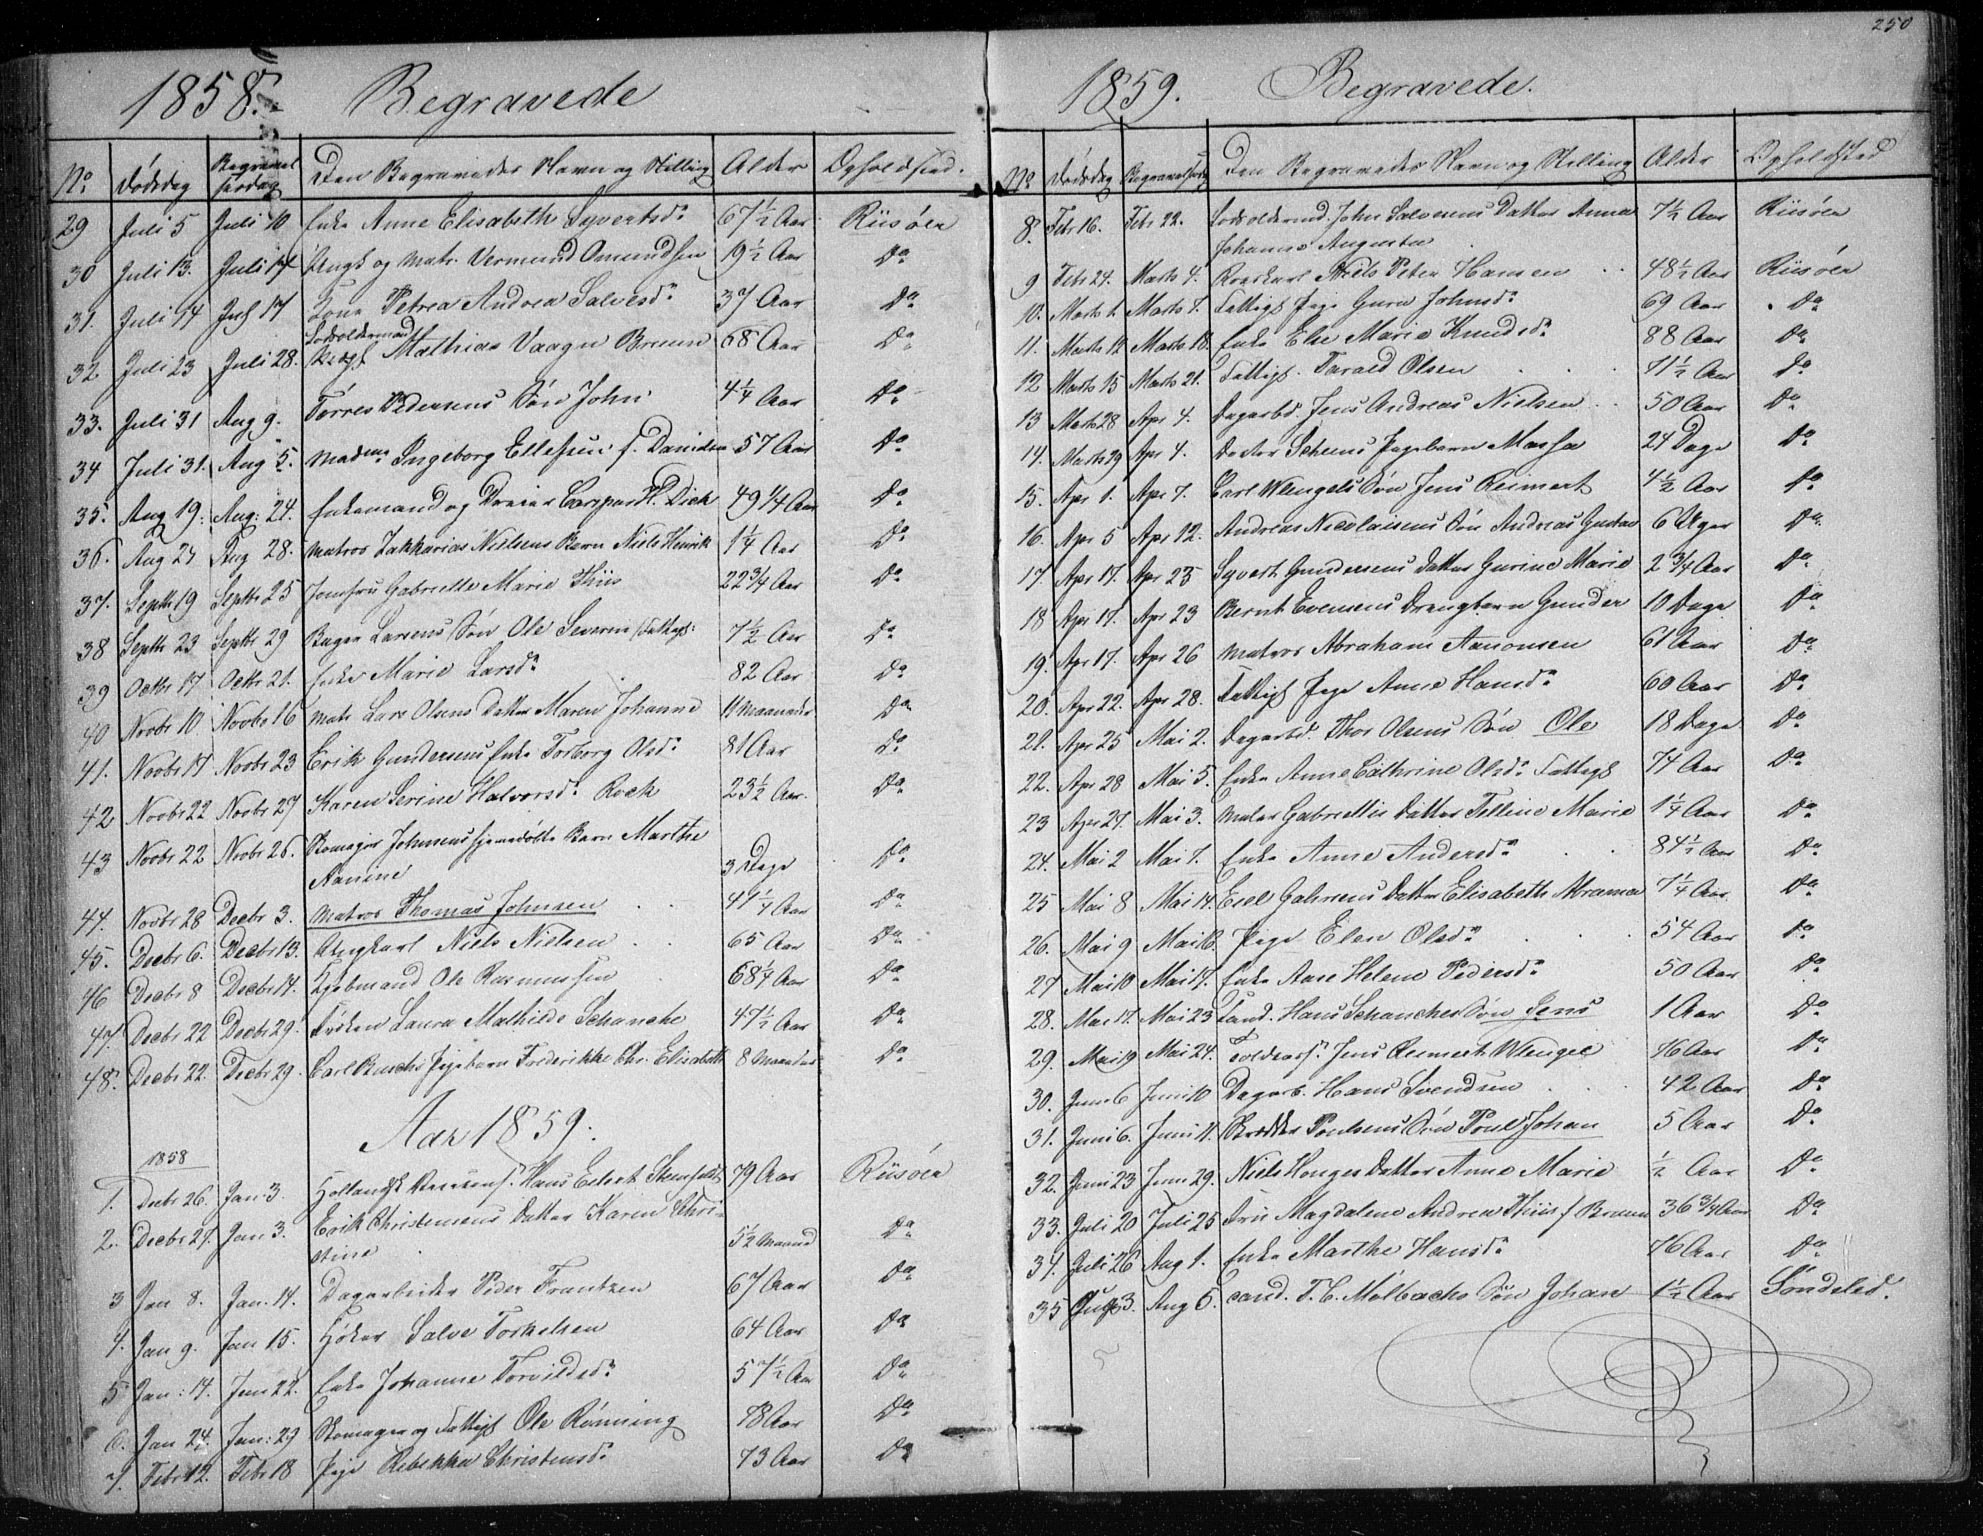 250
1858. Begravede
No Dødsdag Begravelsesdag Den Begravedes Navn og Stilling Alder Opholdsted.
29 Juli 5 Juli 10 Enke Anne Elisabeth Syvertsdr 67 1/2 Aar Riisøer
30 Juli 13. Juli 17 Ungk og Matr. Vermund Omundsen 19 1/2 Aar Do
31. Juli 14 Juli 17 Kone Petrea Andrea Salvesdr 37 Aar Do
32 Juli 23 Juli 28. Mathias Vaagn Bruun 68 Aar Do
33. Juli 31 Aug 9. Torres Pedersens Søn John 4 1/4 Aar Do
34 Juli 31. Aug 5. Madme Ingeborg Ellefsen f. Danielsen 57 Aar Do
35. Aug 19. Aug. 24. Enkemand og Dreier Casper H. Dick 49 1/4 Aar Do
36. Aug 24 Aug 28. Matros Zakkarias Nielsens Barn Niels Henrik 1 1/4 Aar Do
37. Septbr 19 Septbr 25 Jomfru Gabrielle Marie Thiis 22 3/4 Aar Do
38 Septbr 23 Septbr 29 Bager Larsens Søn Ole Severin (Fattigf: 7 1/2 Aar Do
39 Octbr 17 Octbr 21. Enke Marie Larsdr 82 Aar Do
40 Novbr 10. Novbr 16 Matr Lars Olsens Datter Maren Johanne 11 Maaneder Do
41. Novbr 17 Novbr 23 Erik Gundersens Enke Torborg Olsdr 81 Aar Do
42 Novbr 22 Novbr 27 Karen Serine Halvorsdr Roch 23 1/2 Aar. Do
43 Novbr 22 Novbr 26. Skomager Johnsens hjemmedøbte Barn Marthe
Aanine 3 Dage Do
44. Novbr 28 Decbr 3. Matros Thomas Johnsen 41 1/4 Aar Do
45. Decbr 6. Decbr 13. Ungkarl Niels Nielsen 65 Aar Do
46 Decbr 8 Decbr 14. Kjøbmand Ole Rasmussen 68 1/4 Aar Do
47. Decbr 22 Decbr 29. Frøken Laura Mathilde Schanche 47 1/2 Aar Do
48. Decbr 22. Decbr 29. Carl Buachs Pigebarn Frederikke Chr. Elisabeth 8 Maaneder Do
Aar 1859.
1858
1. Decbr 26. Jan. 3. Hans Eilert 79 Aar Riisøer
2. Decbr 27. Jan 3. Erik Christensens Datter Karen Chri-
stine 5 1/2 Maaned Do
3 Jan 8. Jan. 14. Dagarbeider Peder Frantzen 67 Aar Do
4. Jan 9. Jan 15. Høker Salve Torkelsen 64 Aar Do
5 Jan: 14. Jan 22. Enke Johanne Torvildsdr 57 1/2 Aar Do
6. Jan 24. Jan: 29 Skomager og Fattigf Ole Rønning 78 Aar Do
7. Febr 12. Febr 18 Pige Rebekka Christensdr 73 Aar Do
1859. Begravede.
No Dødsdag Begravelsesdag Den Begravedes Navn og Stilling Alder Opholdsted
8. Febr 16. Febr 22. John Salvesens Datter Anna
Johanne Augusta 7 1/2 Aar Riisøer
9 Febr 24. Marts 4. Niels Peter Hansen 48 1/2 Aar Riisøer
10. Marts 1. Marts 7. Fattigf Pige Guro Johnsdr 69 Aar Do
11. Marts 12 Marts 18. Enke Else Marie Knudsdr 88 Aar Do
12 Marts 15 Marts 21. Fattigf. Tarald Olsen 71 1/2 Aar Do
13 Marts 28 Apr 4. Dagarbd. Jens Andreas Nielsen 50 Aar Do
14. Marts 29 Apr 4. Doctor Scheens Pigebarn Massa 24 Dage Do
15. Apr 1. Apr 7. Carl Wengels Søn Jens Reimert 4 1/2 Aar Do
16. Apr 5 Apr 12. Andreas Nicolaisens Søn Andreas Gustav 6 Uger Do
17 Apr 17. Apr 23 Syvert Gundersens Datter Gurine Marie 2 3/4 Aar Do
18 Apr 17. Apr 23 Bernt Evensens Drengbarn Gunder 10 Dage Do
19. Apr 17. Apr 26 Matros Abraham Aanonsen 61 Aar Do
20. Apr 22. Apr 28. Fattigf Pige Anne Hansdr 60 Aar Do
21. Apr 25 Mai 2. Dagarbd. Thor Olsens Søn Ole 18 Dage Do
22. Apr 28 Mai 5. Enke Anne Cathrine Olsdr Fattigf 74 Aar Do
23 Apr 27. Mai 3. Maler Gabriellis Datter Telline Marie 1 1/4 Aar Do
24. Mai 2 Mai 7. Enke Anne Andersdr 84 1/2 Aar Do
25 Mai 8 Mai 14. Datter Elisabeth 7 1/4 Aar Do
26. Mai 9 Mai 16. Pige Elen Olsdr 54 Aar Do
27 Mai 10 Mai 17. Enke Ane Helene Pedersdr 50 Aar Do
28. Mai 17. Mai 23 Cand. Hans Schanches Søn Jens 1 Aar Do
29. Mai 19 Mai 24. Jens Reimert Wengel 76 Aar Do
30. Juni 6 Juni 10 Dagarb. Hans Svendsen 42 Aar Do
31. Juni 6. Juni 11. Skrædder Poulsens Søn Poul Johan 5 Aar Do
32. Juni 23 Juni 29. Niels Honges Datter Anne Marie 1/2 Aar Do
33. Juli 20 Juli 25 Fru Magdalene Andrea Thiis f Bruun 36 3/4 Aar Do
34. Juli 26 Aug 1. Enke Marthe Hansdr 76 Aar Do
35 Aug 3. Aug 5. Cand. T. C. Mølbachs Søn Johan 1 1/2 Aar Søndeled.